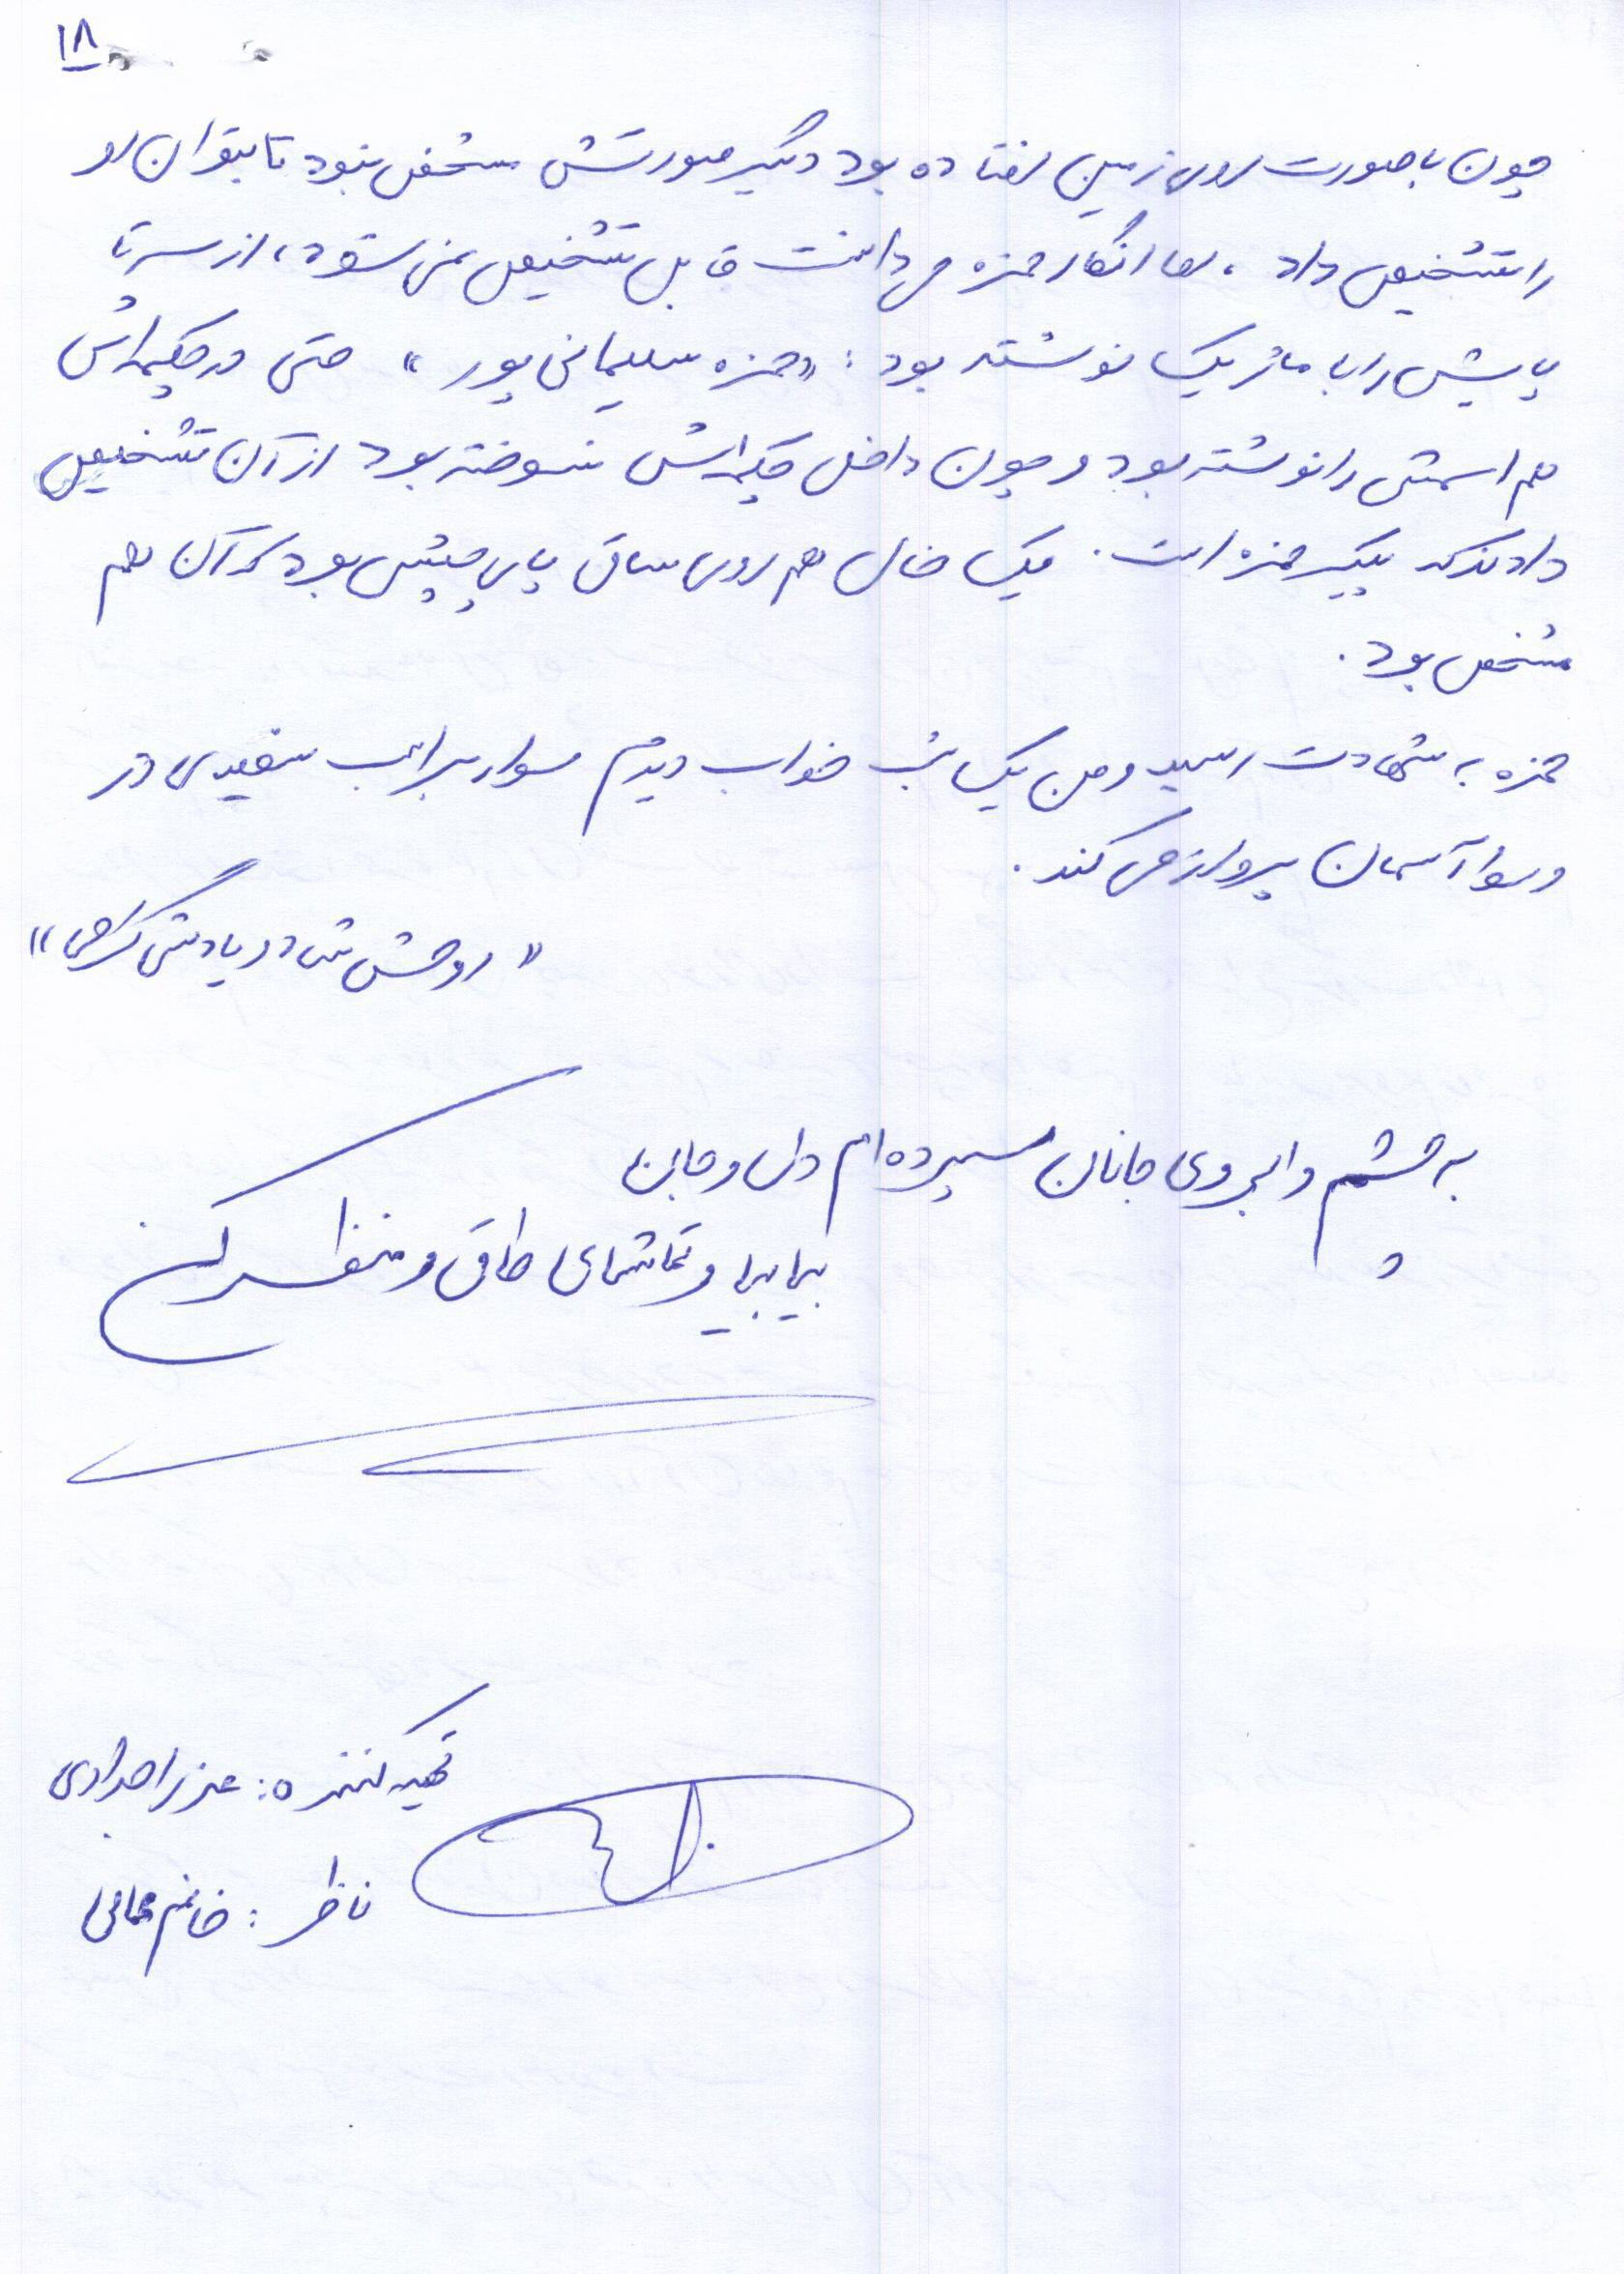 ۱۸
چون با صورت روی زمین افتاده بود دیگر صورتش مشخص نبود تا بتوان او
را تشخیص داد، اما انگار حمزه می دانست قابل تشخیص نمی شود، از سر تا
پایش را با ماژیک نوشته بود: «حمزه سلیمانی پور» حتی در چکمه اش
هم اسمش را نوشته بود و چون داخل چکمه اش نسوخته بود از آن تشخیص
دادند که پیکر حمزه است. یک خال هم روی ساق پای چپش بود که آن هم
مشخص بود.
حمزه به شهادت رسید و من یک شب خواب دیدم سوار بر اسب سفیدی در
وسط آسمان پرواز می کند.
«روحش شاد و یادش گرامی»
به چشم و ابروی جانان سپرده ام دل و جان
بیا بیا و تماشای طاق و منظر کن
تهیه کننده:
ناظر: خانم